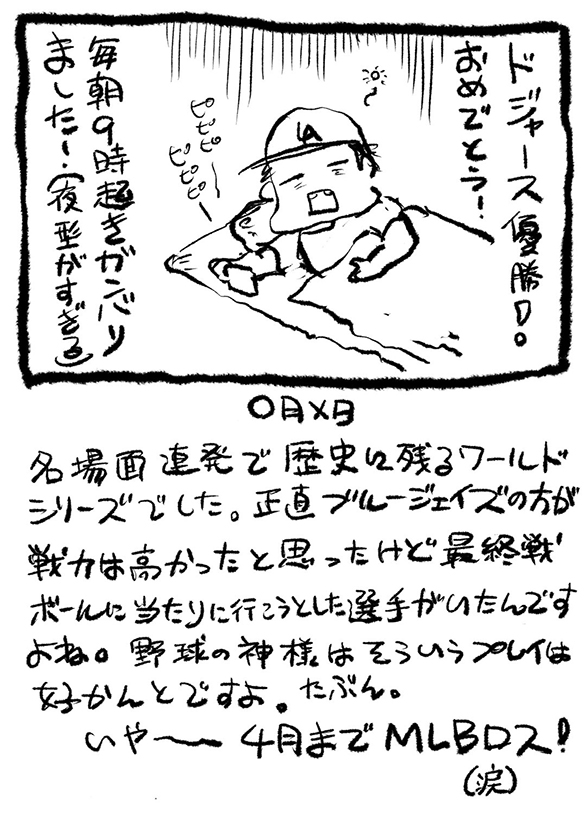 ドジャース優勝!。
おめでとう!
LA
ピピピー
ピピピー
毎朝9時起きガンバリ
ました!(夜型がすぎる)
〇月×日
名場面連発で歴史に残るワールド
シリーズでした。正直ブルージェイズの方が
戦力は高かったと思ったけど最終戦
ボールに当たりに行こうとした選手がいたんです
よね。野球の神様はそういうプレイは
好かんとですよ。たぶん。
いや〜 4月までMLBロス!
(涙)